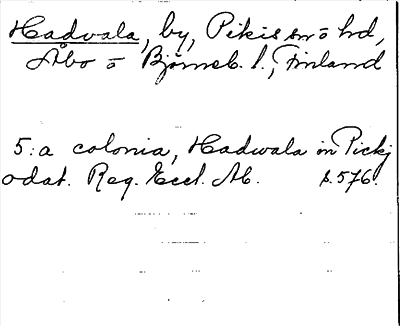 Hadvala, by, Pikis sn o hd,
Åbo o Björneb. l., Finland
5:a colonia, Hadwala in Pickj
odat. Reg. Eccl. Ab. s. 576.